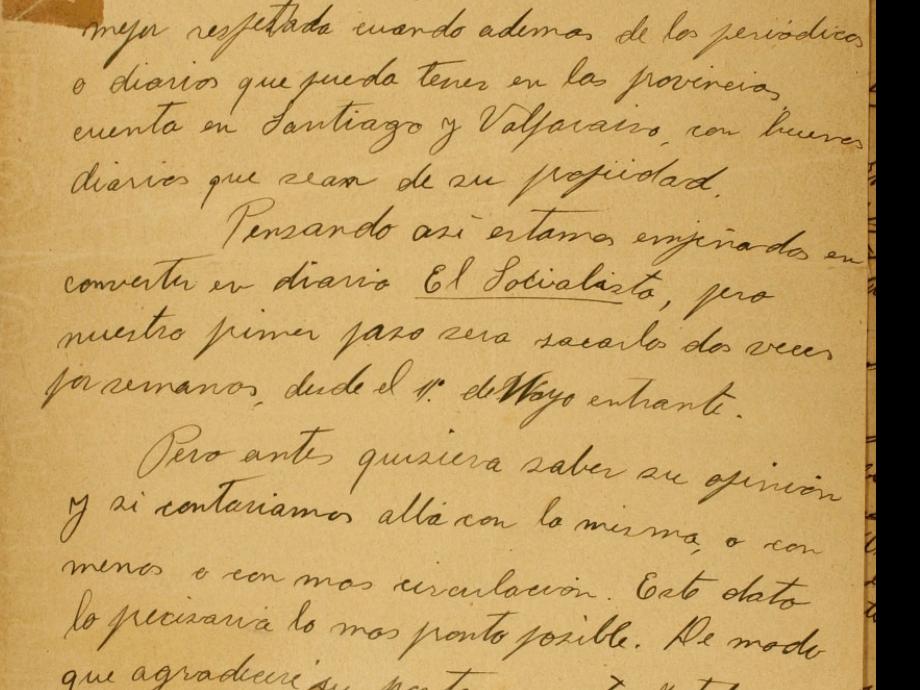 mejor respetada cuando ademas de los periódicos
o diarios que pueda tener en las provincias,
cuenta en Santiago y Valparaiso, con buenos
diarios que sean de su propiedad.
Pensando asi estamos empeñados en
convertir en diario El Socialista, pero
nuestro primer paso sera sacarlos dos veces
por semanas, desde el 1º. de Mayo entrante.
Pero antes quisiera saber su opinión
y si contariamos allá con la misma, o con
menos o con mas circulación. Este dato
lo precisaria lo mas pronto posible. De modo
que agradeceré su